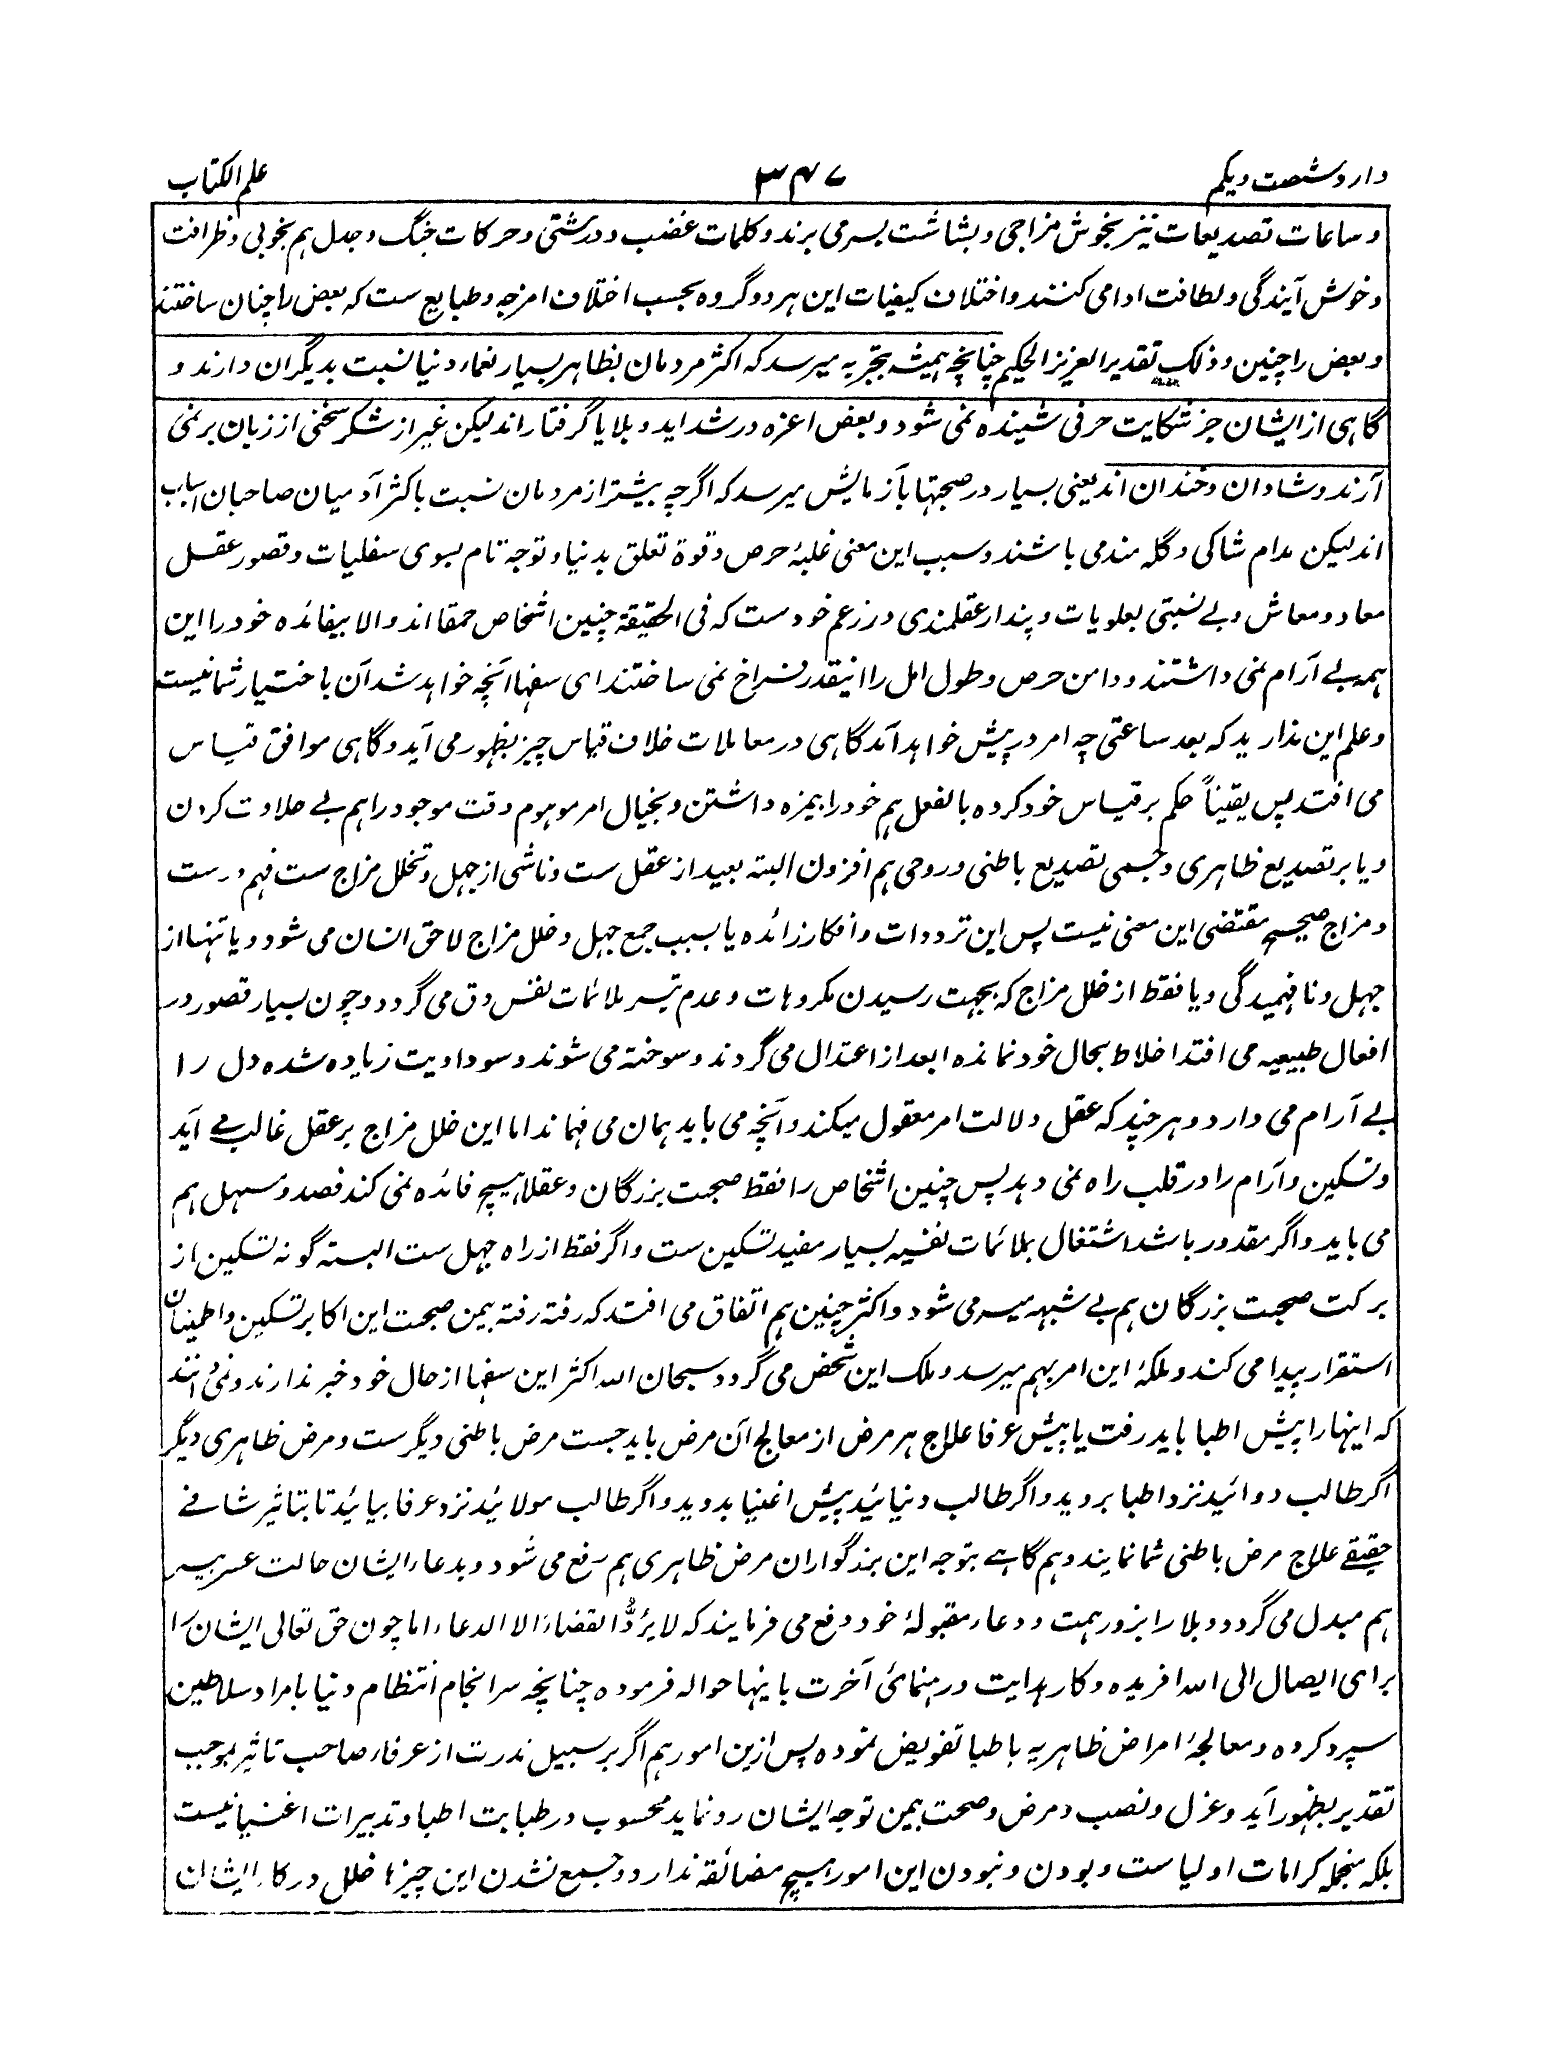 وارد شصت و یکم ۳۴۷ علم الکتاب
و ساعات تصدیعات نیز بخوش مزاجی و بشاشت بسر می برند و کلمات غضب و درشتی و حرکات جنگ و جدل هم بخوبی و ظرافت
و خوش آیندگی و لطافت ادا می کنند و اختلاف کیفیات این هر دو گروه بحسب اختلاف امزجه و طبایع ست که بعض را چنان ساختند
و بعض را چنین و ذلک تقدیر العزیز الحکیم چنانچه همیشه بتجربه میرسد که اکثر مردمان بظاهر بسیار نعماء دنیا نسبت بدیگران دارند و
گاهی از ایشان جز شکایت حرفی شنیده نمی شود و بعض اعزه در شداید و بلایا گرفتار اند لیکن غیر از شکر سخنی از زبان بر نمی
آرند و شادان و خندان اند یعنی بسیار در صحبتها بآزمایش میرسد که اگرچه بیشتر از مردمان نسبت باکثر آدمیان صاحبان اسباب
اند لیکن مدام شاکی و گله مند می باشند و سبب این معنی غلبهٔ حرص و قوة تعلق بدنیا و توجه تام بسوی سفلیات و قصور عقل
معاد و معاش و بے نسبتی بعلویات و پندار عقلمندی در زعم خود ست که فی الحقیقة چنین اشخاص حمقا اند و الا بیفائده خود را این
همه بے آرام نمی داشتند و دامن حرص و طول امل را اینقدر فراخ نمی ساختند ای سفها آنچه خواهد شد آن باختیار شما نیست
و علم این ندارید که بعد ساعتی چه امر در پیش خواهد آمد گاهی در معاملات خلاف قیاس چیز بظهور می آید و گاهی موافق قیاس
می افتد پس یقیناً حکم بر قیاس خود کرده بالفعل هم خود را بیمزه داشتن و بخیال امر موهوم وقت موجود را هم بے حلاوت کردن
و یا بر تصدیع ظاهری و جسمی تصدیع باطنی و روحی هم افزون البته بعید از عقل ست و ناشی از جهل و تخلل مزاج ست فهم درست
و مزاج صحیح مقتضی این معنی نیست پس این ترددات و افکار زائده یا بسبب جمع جهل و خلل مزاج لاحق انسان می شود و یا تنها از
جهل و نافهمیدگی و یا فقط از خلل مزاج که بجهت رسیدن مکروهات و عدم تیسر ملائمات نفس دق می گردد و چون بسیار قصور در
افعال طبیعیه می افتد اخلاط بحال خود نمانده ابعد از اعتدال می گردند و سوخته می شوند و سوداویت زیاده شده دل را
بے آرام می دارد و هر چند که عقل دلالت امر معقول میکند و آنچه می باید همان می فهماند اما این خلل مزاج بر عقل غالب مے آید
و تسکین و آرام را در قلب راه نمی دهد پس چنین اشخاص را فقط صحبت بزرگان و عقلا هیچ فائده نمی کند فصد و مسهل هم
می باید و اگر مقدور باشد اشتغال بملائمات نفسیه بسیار مفید تسکین ست و اگر فقط از راه جهل ست البته گونه تسکین از
برکت صحبت بزرگان هم بے شبهه میسر می شود و اکثر چنین هم اتفاق می افتد که رفته رفته بیمن صحبت این اکابر تسکین و اطمینان
استقرار پیدا می کند و ملکهٔ این امر بهم میرسد و ملک این شخص می گردد سبحان الله اکثر این سفها از حال خود خبر ندارند و نمی دانند
که اینها را پیش اطبا باید رفت یا پیش عرفا علاج هر مرض از معالج آن مرض باید جست مرض باطنی دیگر ست و مرض ظاهری دیگر
اگر طالب دوائید نزد اطبا بروید و اگر طالب دنیائید پیش اغنیا بدوید و اگر طالب مولائید نزد عرفا بیائید تا بتاثیر شافے
حقیقے علاج مرض باطنی شما نمایند و هم گاهے بتوجه این بزرگواران مرض ظاهری هم رفع می شود و بدعاء ایشان حالت عسر بیسر
هم مبدل می گردد و بلا را بزور همت و دعاء مقبولهٔ خود دفع می فرمایند که لا یردُّ القضاءَ الا الدعاء اما چون حق تعالی ایشان را
برای ایصال الی الله آفریده و کار هدایت و رهنمائی آخرت باینها حواله فرموده چنانچه سرانجام انتظام دنیا بامرا و سلاطین
سپرد کرده و معالجهٔ امراض ظاهریه باطبا تفویض نموده پس ازین امور هم اگر بر سبیل ندرت از عرفاء صاحب تاثیر بموجب
تقدیر بظهور آید و عزل و نصب و مرض و صحت بیمن توجه ایشان رو نماید محسوب در طبابت اطبا و تدبیرات اغنیا نیست
بلکه منجمله کرامات اولیاست و بودن و نبودن این امور هیچ مضائقه ندارد و جمع نشدن این چیزها خلل در کار ایشان